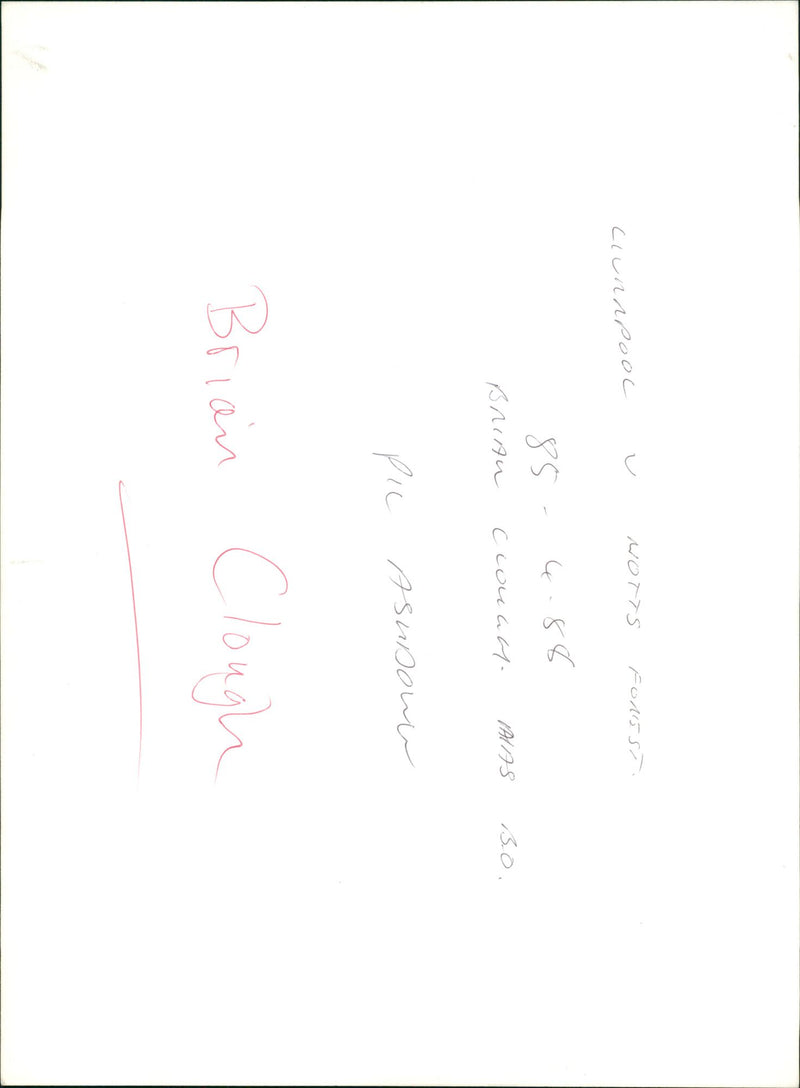 LIVERPOOL V NOTTS FOREST.
85-4-88
BRIAN CLOUGH. HAS B.O.
PIC ASHDOWN
Brian Clough